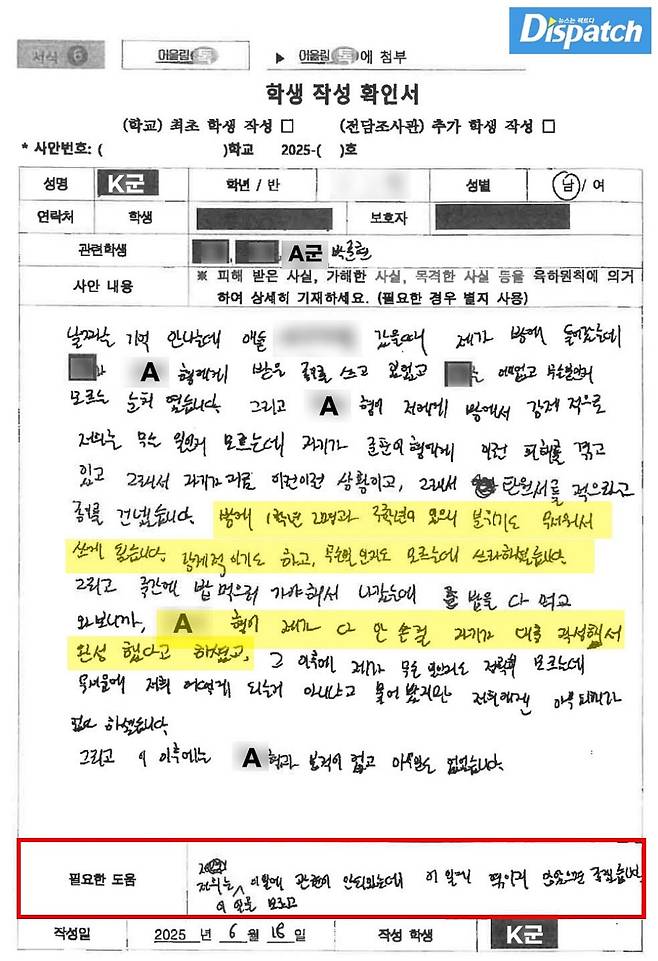 뉴스는 팩트다
Dispatch
서식 6
어울림 톡
▶ 어울림 톡 에 첨부
학생 작성 확인서
(학교) 최초 학생 작성 □ (전담조사관) 추가 학생 작성 □
* 사안번호: ( )학교 2025-( )호
성명 K군 학년 / 반 성별 남 / 여
연락처 학생 보호자
관련학생 A군
사안 내용
※ 피해 받은 사실, 가해한 사실, 목격한 사실 등을 육하원칙에 의거
하여 상세히 기재하세요. (필요한 경우 별지 사용)
날짜는 기억 안나는데 갔을때 제가 방에 들어갔는데
가 A 형에게 받은 종이를 쓰고 있었고
모르는 눈치 였습니다. 그리고 A 형이 저에게 방에서 강제적으로
저희는 무슨 일인지 모르는데 자기가 형한테 이런 피해를 겪고
있고 그래서 자기가 지금 이런이런 상황이고, 그래서 탄원서를 적으라고
종이를 건넸습니다. 방에 1학년 2명과 3학년이 있으니 분위기도 무서워서
쓰게 됐습니다. 강제적이기도 하고, 무슨일인지도 모르는데 쓰라하셨습니다.
그리고 중간에 밥 먹으러 가야해서 나갔는데 밥을 다 먹고
와보니까, A 형이 제가 다 안 쓴걸 자기가 대충 작성해서
완성 했다고 하셨고, 그 이후에 제가 무슨 일인지도 전혀 모르는데
무서움에 저희 어떻게 되는거 아니냐고 물어 봤지만 저희에겐 아무 피해가
없다 하셨습니다.
그리고 이 이후에는 A 형과 없고 아무일도 없었습니다.
필요한 도움
저희는 이일에 관련이 안되있는데 이 일에 엮이지 않았으면 좋겠습니다.
이 일을 모르고
작성일 2025 년 6 월 18 일 작성 학생 K군